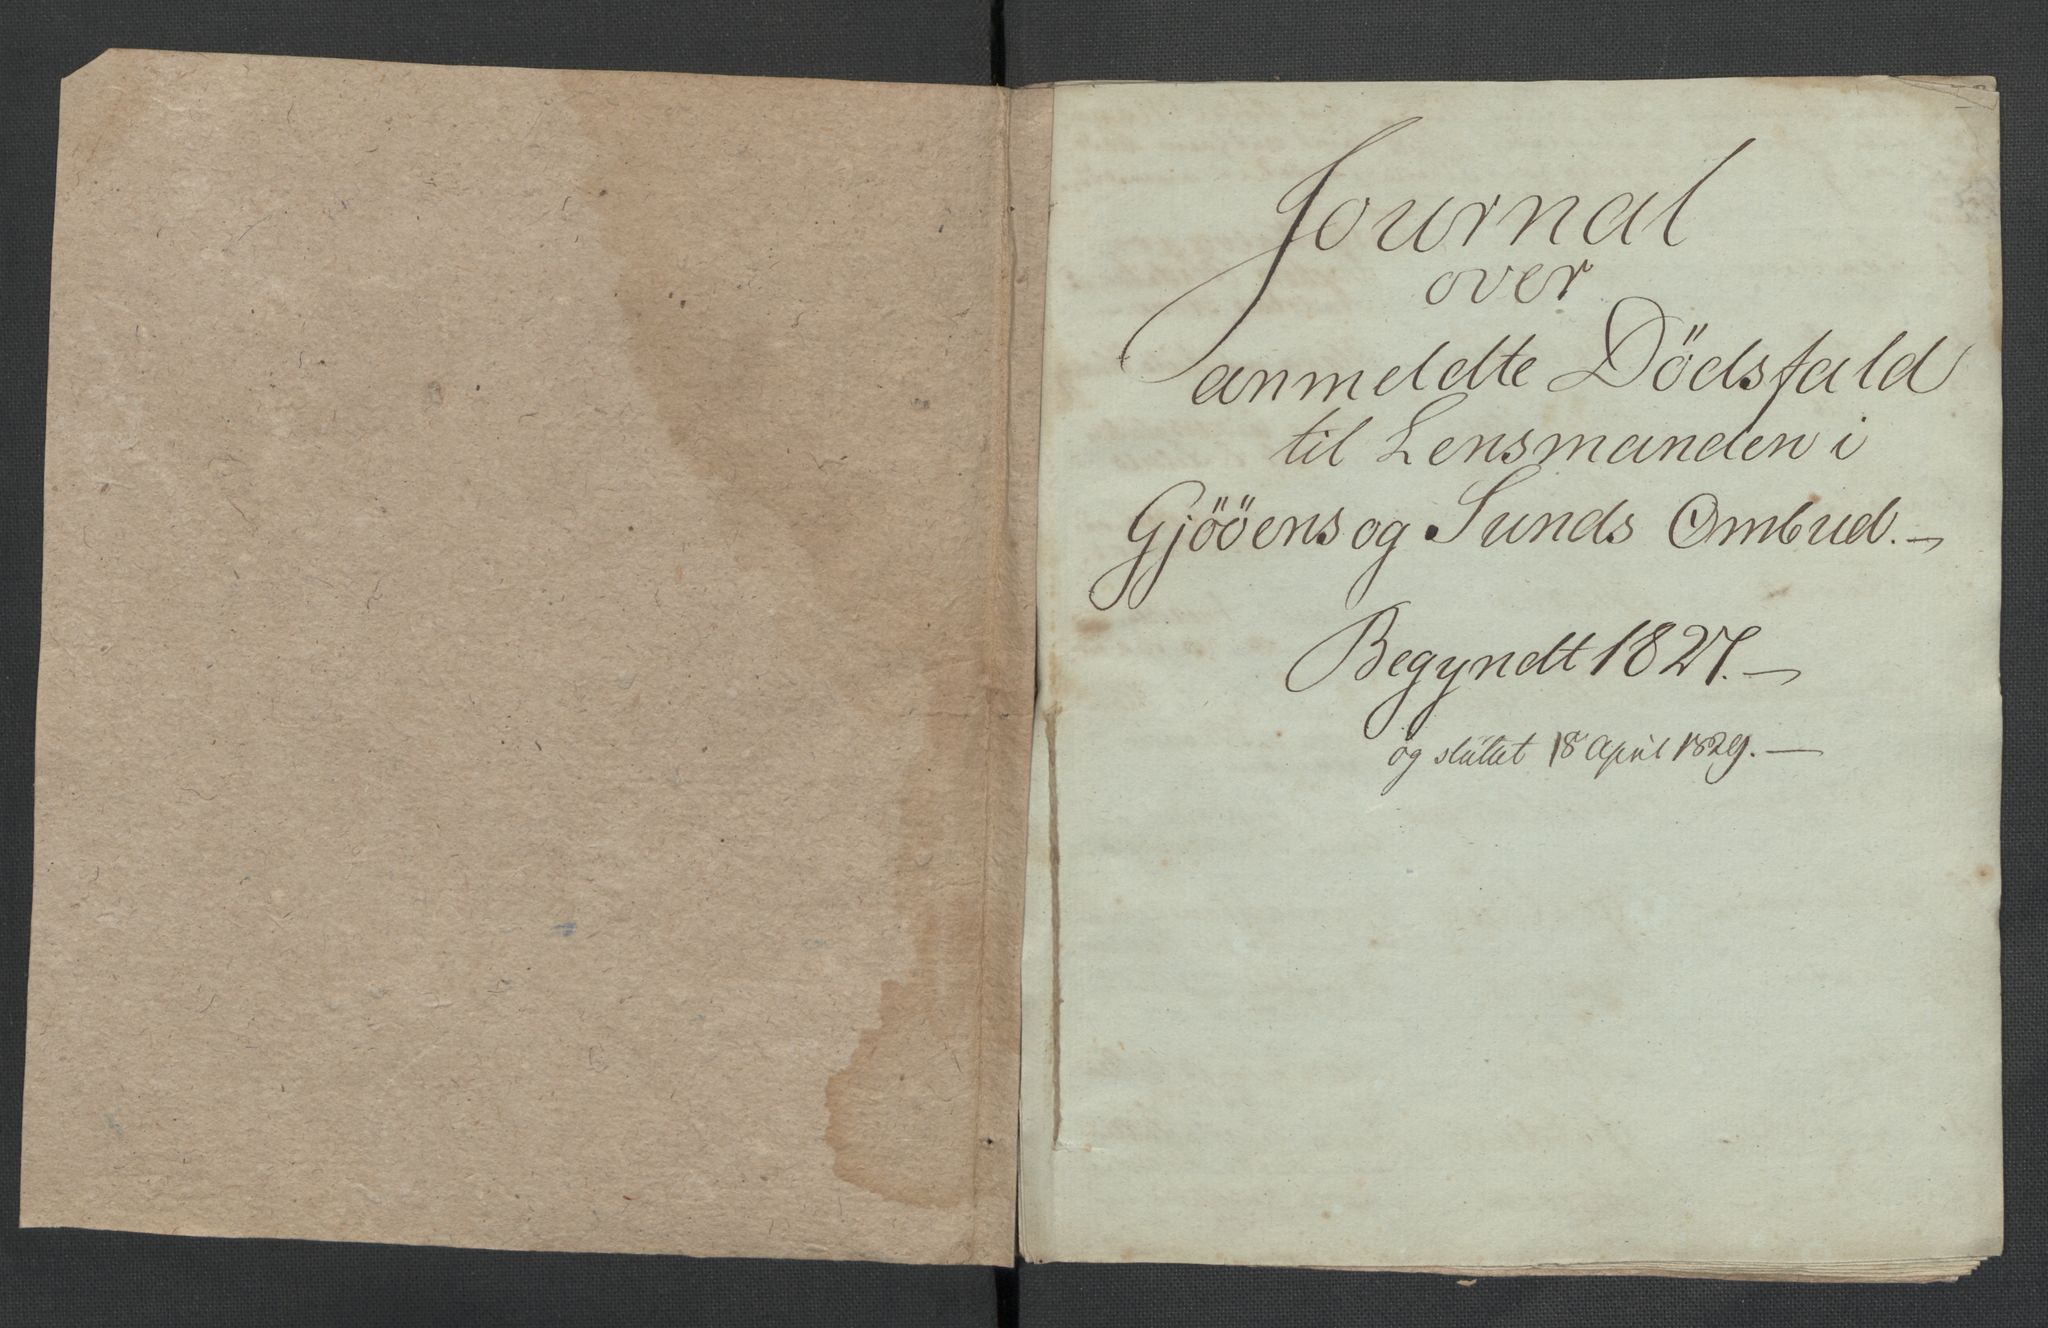 Journal
over
anmeldte Dödsfald
til Lensmanden i
Gjööens og Sunds Ombud.
Begyndt 1827.
og slüttet 18 April 1829.